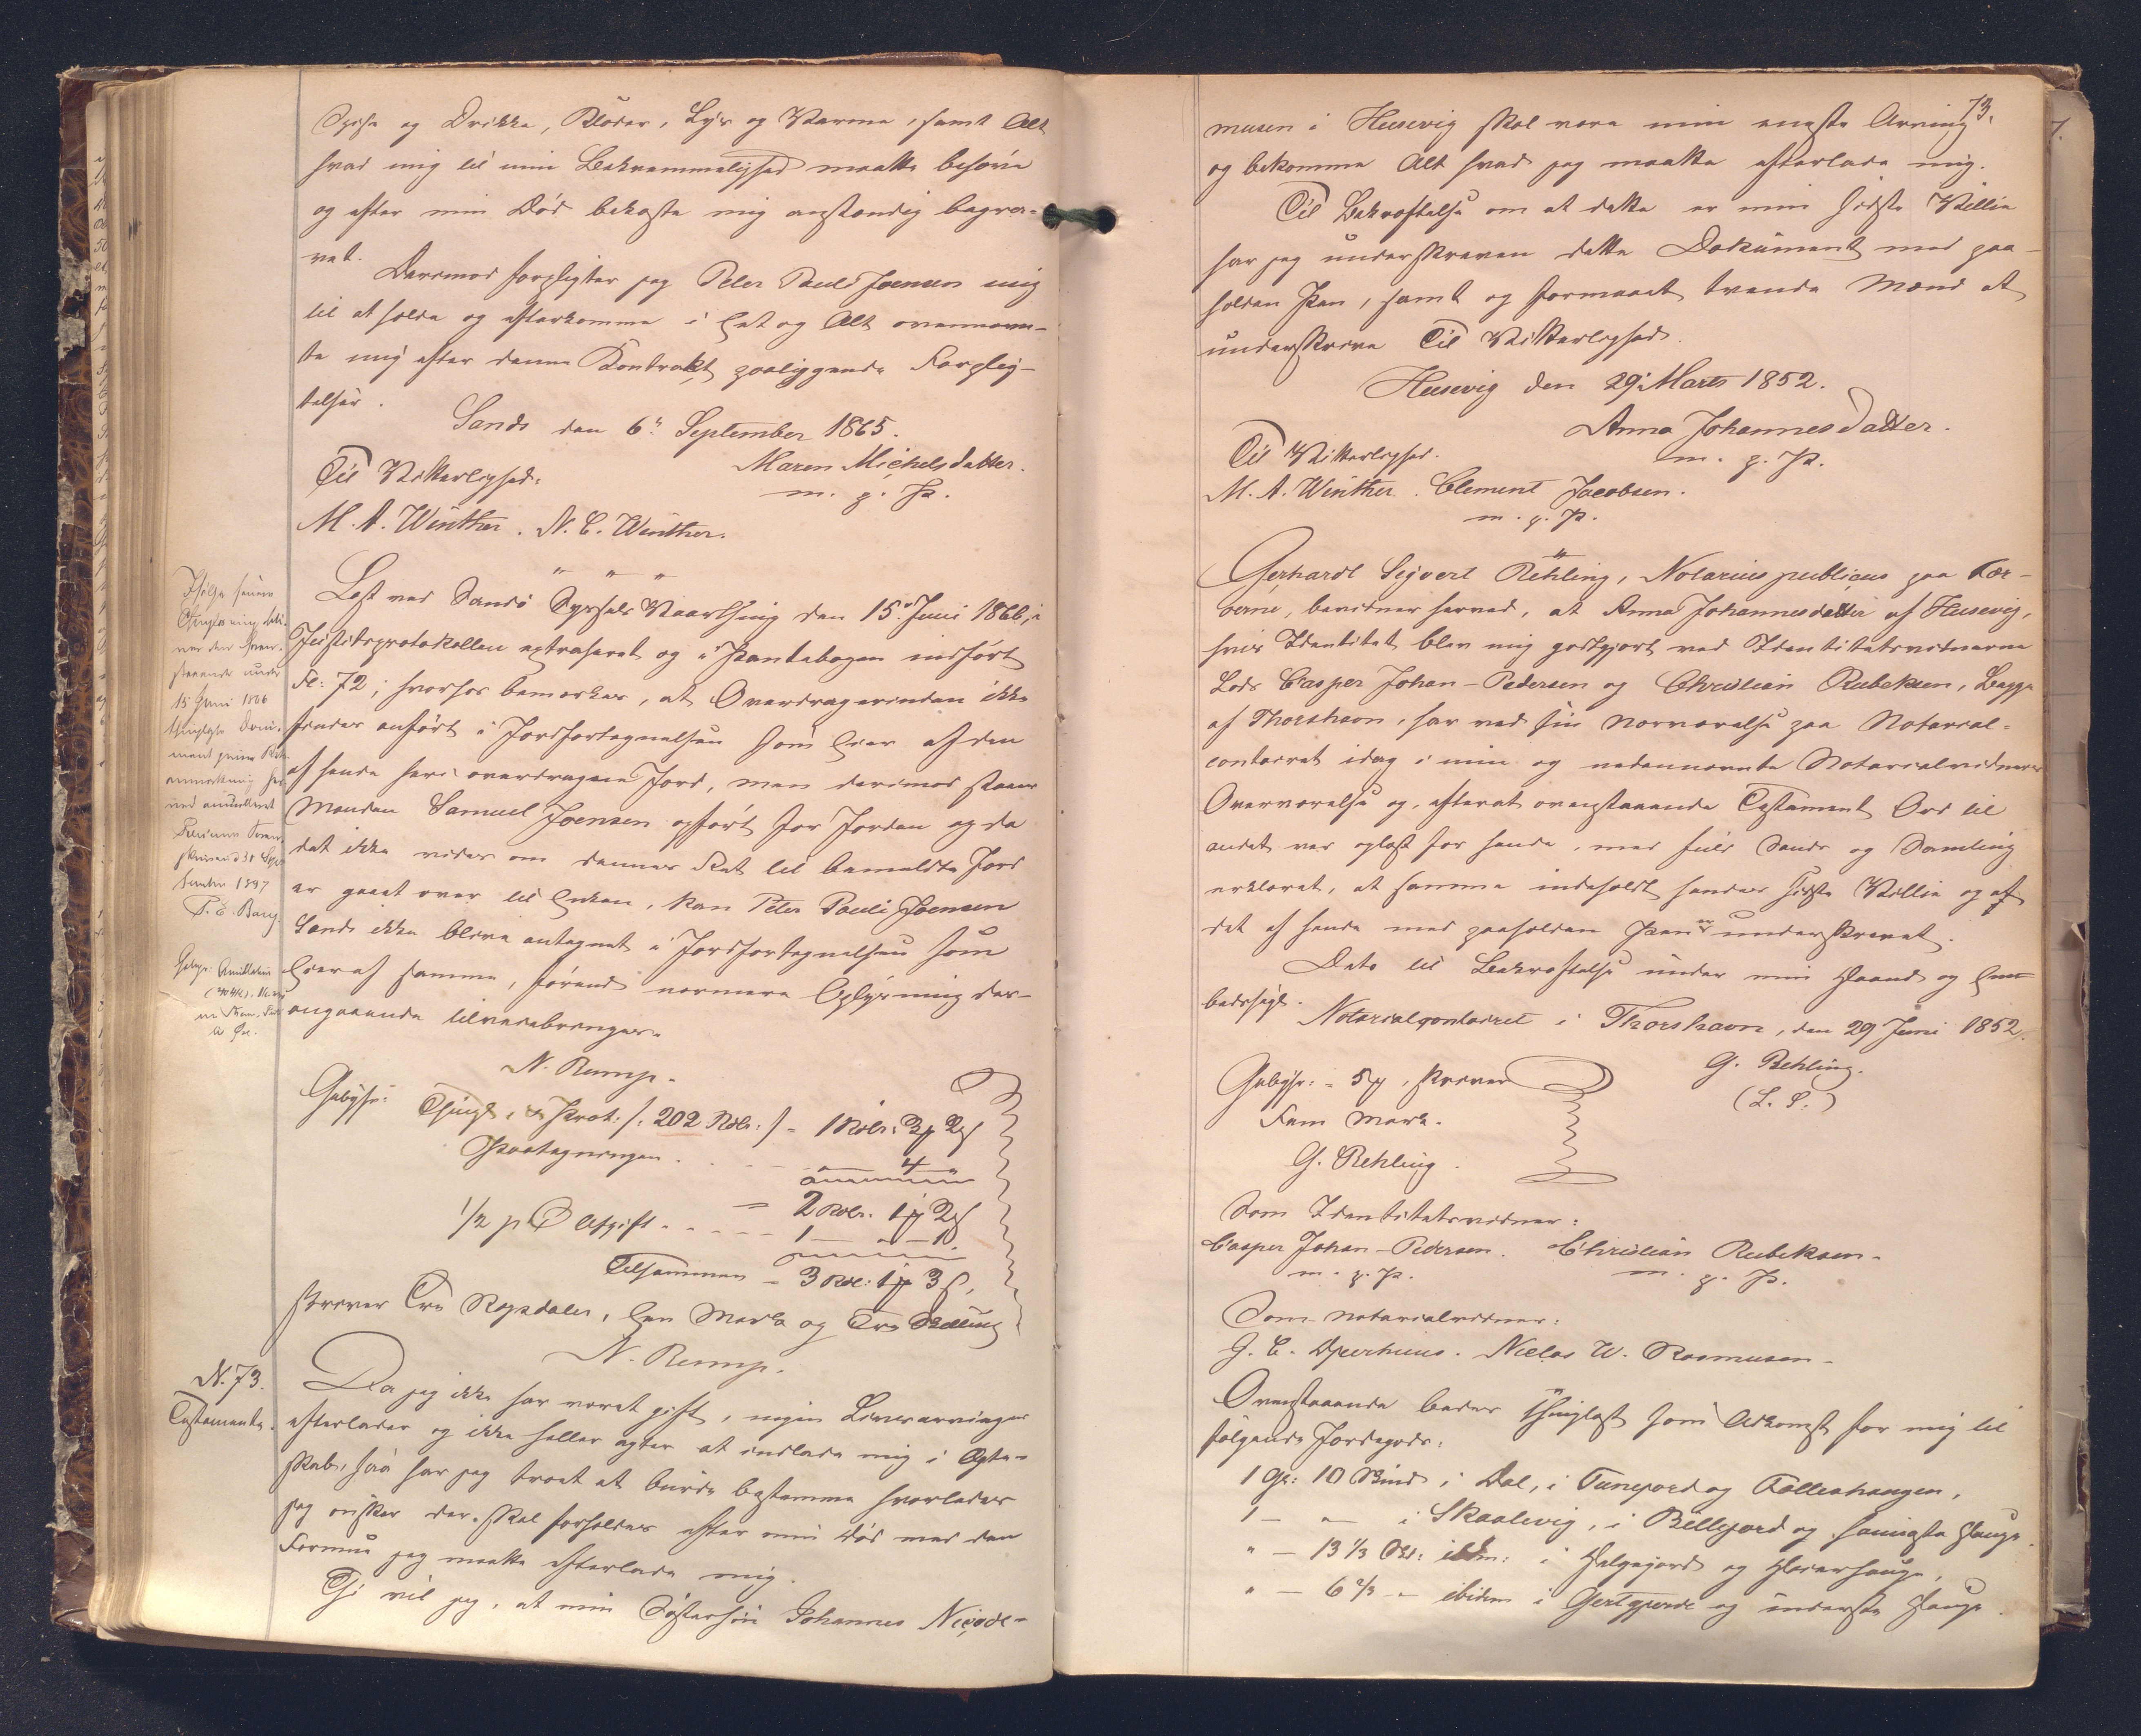 Spise og Drikke, Klæder, Lys og Varme, samt Alt
hvad mig til min Bekvemmelighed maatte behøve
og efter min Død bekoste mig anstændig begra-
vet.
Derimod forpligter jeg Peter Pauli Joensen mig
til at holde og efterkomme i Eet og Alt ovennævn-
te mig efter denne Kontrakt paaliggende Forplig-
telser.
Sands den 6te September 1865.
Til Vitterlighed:
Maren Michelsdatter.
m. p. P.
M. A. Winther. N. C. Winther.
Læst ved Sandø Syssels Vaarthing den 15de Juni 1866, i
Justitsprotokollen extraheret og i Pantebogen indført
Fol: 72; hvorhos bemærkes, at Overdragerinden ikke
findes anført i Jordfortegnelsen som Eier af den
af hende heri overdragne Jord, men derimod staaer
Manden Samuel Joensen opført for Jorden og da
det ikke vides om dennes Ret til bemeldte Jord
er gaaet over til Enken, kan Peter Pauli Joensen
Sand ikke blive antegnet i Jordfortegnelsen som
Eier af samme, førend nærmere Oplysning der-
angaaende tilveiebringes.
N. Rump.
Ifølge senere
Thinglæsning
staaende under
15 Juni 1866
thinglyste Docu-
ment
anmærkning her-
ved annulleret
1897
Gebyr: Thingl. & Prot: /: 202 Rdlr: / - 1 Rdlr: 3 ℳ 2 ß
Paategningen . . . . - " - 4 "
= 2 Rdlr. 1 ℳ 2 ß
1/2 p C Afgift . . . . 1 — " — 10.
Tilsammen = 3 Rdl: 1 ℳ 3 ß,
skriver Tre Rigsdaler, Een Mark og Tre Skilling
N. Rump.
N. 73.
Testamente.
Da jeg ikke har været gift, ingen Livsarvinger
efterlader og ikke heller agter at indlade mig i Ægte-
skab, saa har jeg troet at burde bestemme hvorledes
jeg ønsker der skal forholdes efter min Død med den
Formue jeg maatte efterlade mig.
Thi vil jeg, at min Søstersøn Johannes Nicode-
73.
musen i Husevig skal være min eneste Arving
og bekomme Alt hvad jeg maatte efterlade mig.
Til Bekræftelse om at dette er min sidste Villie
har jeg underskreven dette Dokument med paa-
holden Pen, samt og formaaet tvende Mænd at
underskrive Til Vitterlighed.
Husevig den 29de Marts 1852.
Anna Johannesdatter.
m. p. P.
Til Vitterlighed.
M. A. Winther. Clement Jacobsen.
m. p. P.
Gerhardt Sigvert Rehling, Notarius publicus paa Fær-
øerne, bevidner herved, at Anna Johannesdatter af Husevig,
hvis Identitet blev mig godtgjort ved Identitetsvidnerne
Lods Casper Johan-Pedersen og Christian Rubeksen, Begge
af Thorshavn, har ved sin Nærværelse paa Notarial-
contoiret idag i min og nedennævnte Notarialvidners
Overværelse og, efterat ovenstaaende Testament Ord til
andet var oplæst for hende, med fuld Sands og Samling
erklæret, at samme indeholdt hendes sidste Villie og at
det af hende med paaholden Pen er underskrevet.
Dets til Bekræftelse under min Haand og Em-
bedssegl.
Notarialcontoiret i Thorshavn, den 29 Juni 1852.
G. Rehling.
(L. S.)
Gebyr: = 5 ℳ, skriver
Fem Mark.
G. Rehling.
Som Identitetsvidner:
Casper Johan-Pedersen. Christian Rubeksen.
m. p. P. m. p. P.
Som Notarialvidner:
G. C. Djurhuus. Niclas W. Rasmusen.
Ovenstaaende bedes thinglæst som Adkomst for mig til
følgende Jordegods:
1 Gl: 10 Skind i Dal, i Tunejord og
1 — " — i Skaalevig, i Billejord og Hauge.
" — 13 1/3 Skd: ibdm: i Helgejord og Heierhauge,
" — 6 2/3 — ibidem i Giertgjerde og inderste Hauge.